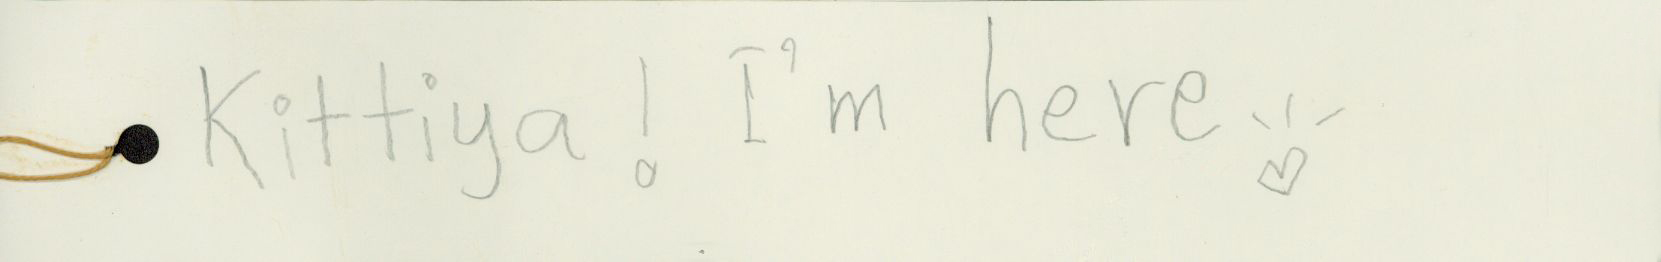 Kittiya! I'm here